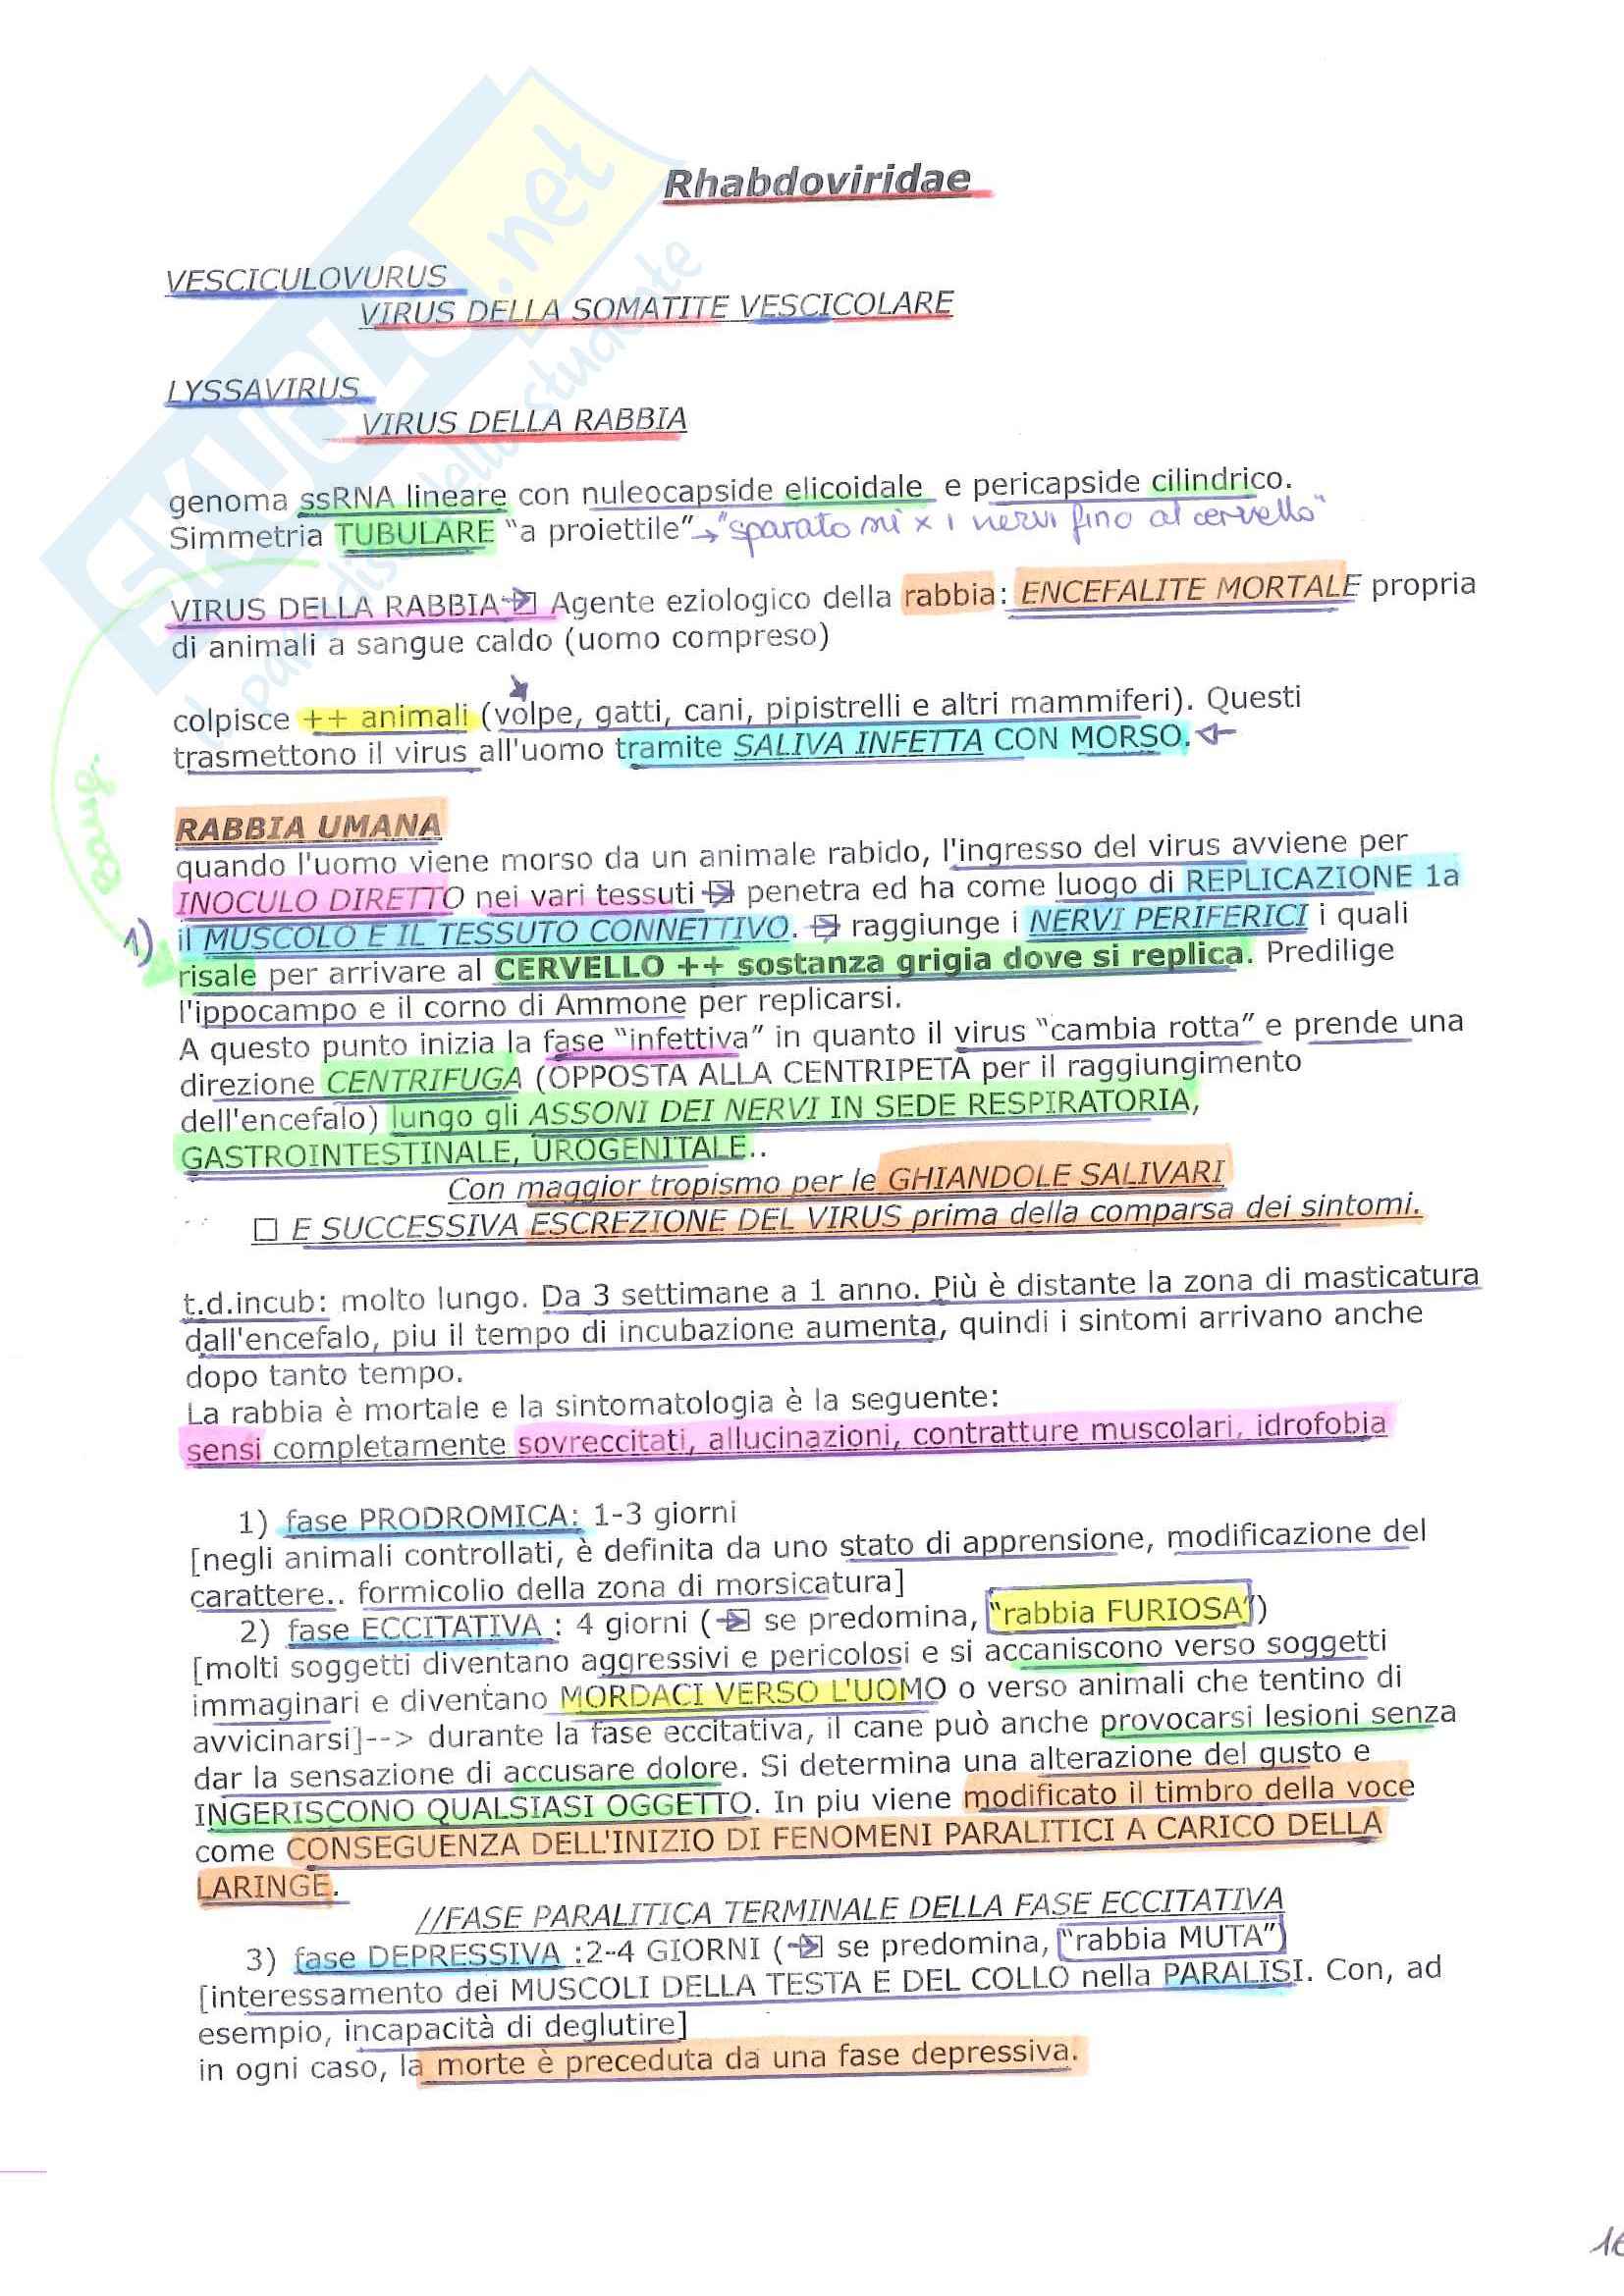 Rhabdoviridae
VESCICULOVURUS
VIRUS DELLA SOMATITE VESCICOLARE
LYSSAVIRUS
VIRUS DELLA RABBIA
genoma ssRNA lineare con nuleocapside elicoidale e pericapside cilindrico.
Simmetria TUBULARE “a proiettile”→"sparato su x i nervi fino al cervello"
VIRUS DELLA RABBIA→ Agente eziologico della rabbia: ENCEFALITE MORTALE propria
di animali a sangue caldo (uomo compreso)
colpisce ++ animali (volpe, gatti, cani, pipistrelli e altri mammiferi). Questi
trasmettono il virus all'uomo tramite SALIVA INFETTA CON MORSO.
Bang.
RABBIA UMANA
quando l'uomo viene morso da un animale rabido, l'ingresso del virus avviene per
INOCULO DIRETTO nei vari tessuti → penetra ed ha come luogo di REPLICAZIONE 1a
1) il MUSCOLO E IL TESSUTO CONNETTIVO. → raggiunge i NERVI PERIFERICI i quali
risale per arrivare al CERVELLO ++ sostanza grigia dove si replica. Predilige
l'ippocampo e il corno di Ammone per replicarsi.
A questo punto inizia la fase “infettiva” in quanto il virus “cambia rotta” e prende una
direzione CENTRIFUGA (OPPOSTA ALLA CENTRIPETA per il raggiungimento
dell'encefalo) lungo gli ASSONI DEI NERVI IN SEDE RESPIRATORIA,
GASTROINTESTINALE, UROGENITALE..
Con maggior tropismo per le GHIANDOLE SALIVARI
□ E SUCCESSIVA ESCREZIONE DEL VIRUS prima della comparsa dei sintomi.
t.d.incub: molto lungo. Da 3 settimane a 1 anno. Più è distante la zona di masticatura
dall'encefalo, piu il tempo di incubazione aumenta, quindi i sintomi arrivano anche
dopo tanto tempo.
La rabbia è mortale e la sintomatologia è la seguente:
sensi completamente sovreccitati, allucinazioni, contratture muscolari, idrofobia
1) fase PRODROMICA: 1-3 giorni
[negli animali controllati, è definita da uno stato di apprensione, modificazione del
carattere.. formicolio della zona di morsicatura]
2) fase ECCITATIVA : 4 giorni (→ se predomina, “rabbia FURIOSA”)
[molti soggetti diventano aggressivi e pericolosi e si accaniscono verso soggetti
immaginari e diventano MORDACI VERSO L'UOMO o verso animali che tentino di
avvicinarsi]--> durante la fase eccitativa, il cane può anche provocarsi lesioni senza
dar la sensazione di accusare dolore. Si determina una alterazione del gusto e
INGERISCONO QUALSIASI OGGETTO. In piu viene modificato il timbro della voce
come CONSEGUENZA DELL'INIZIO DI FENOMENI PARALITICI A CARICO DELLA
LARINGE.
//FASE PARALITICA TERMINALE DELLA FASE ECCITATIVA
3) fase DEPRESSIVA :2-4 GIORNI (→ se predomina, “rabbia MUTA”)
[interessamento dei MUSCOLI DELLA TESTA E DEL COLLO nella PARALISI. Con, ad
esempio, incapacità di deglutire]
in ogni caso, la morte è preceduta da una fase depressiva.